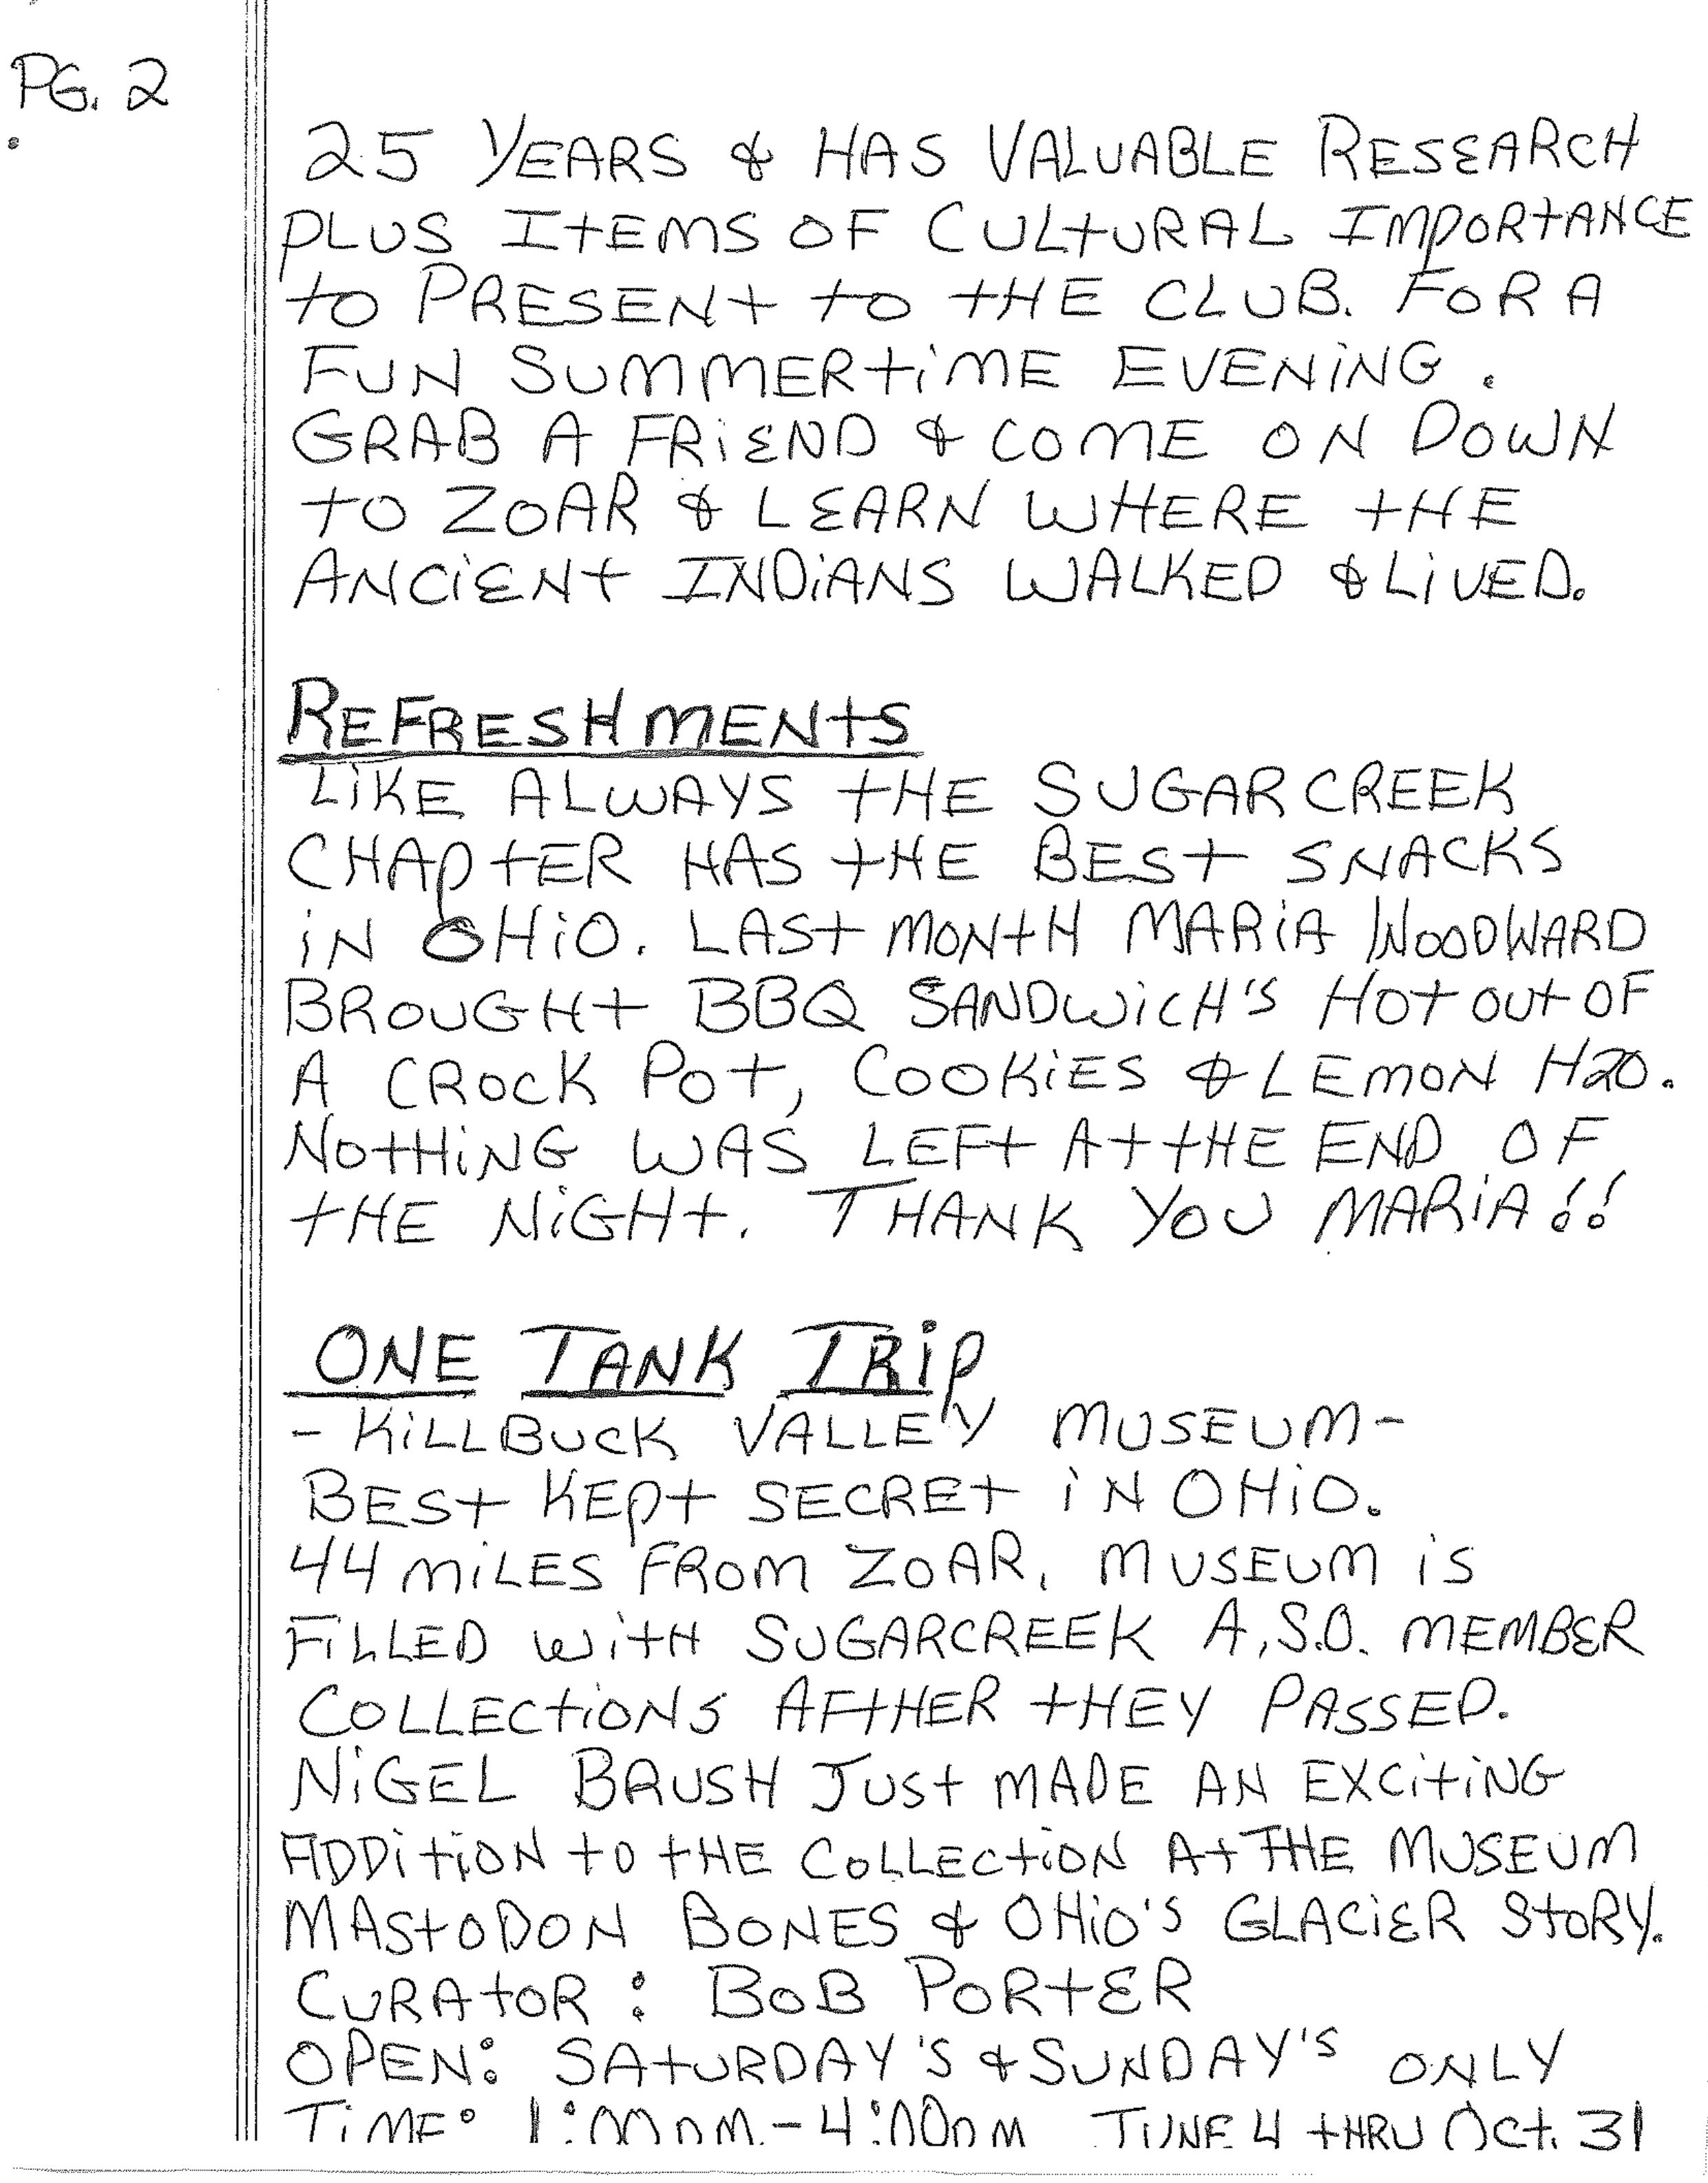 PG. 2
25 YEARS & HAS VALUABLE RESEARCH
PLUS ITEMS OF CULTURAL IMPORTANCE
TO PRESENT TO THE CLUB. FOR A
FUN SUMMERTIME EVENING.
GRAB A FRIEND & COME ON DOWN
TO ZOAR & LEARN WHERE THE
ANCIENT INDIANS WALKED & LIVED.
REFRESHMENTS
LIKE ALWAYS THE SUGARCREEK
CHAPTER HAS THE BEST SNACKS
IN OHIO. LAST MONTH MARIA WOODWARD
BROUGHT BBQ SANDWICH'S HOT OUT OF
A CROCK POT, COOKIES & LEMON H2O.
NOTHING WAS LEFT AT THE END OF
THE NIGHT. THANK YOU MARIA!!
ONE TANK TRIP
- KILLBUCK VALLEY MUSEUM -
BEST KEPT SECRET IN OHIO.
44 MILES FROM ZOAR. MUSEUM IS
FILLED WITH SUGARCREEK A.S.O. MEMBER
COLLECTIONS AFTHER THEY PASSED.
NIGEL BRUSH JUST MADE AN EXCITING
ADDITION TO THE COLLECTION AT THE MUSEUM
MASTODON BONES & OHIO'S GLACIER STORY.
CURATOR: BOB PORTER
OPEN: SATURDAY'S & SUNDAY'S ONLY
TIME: 1:00PM - 4:00PM JUNE 4 THRU OCT. 31